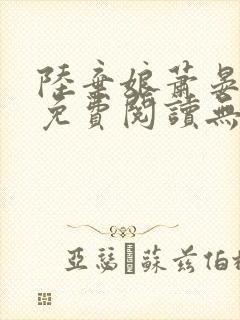 陸棄娘蕭晏
免費閱讀無
亞瑟·蘇茲伯格